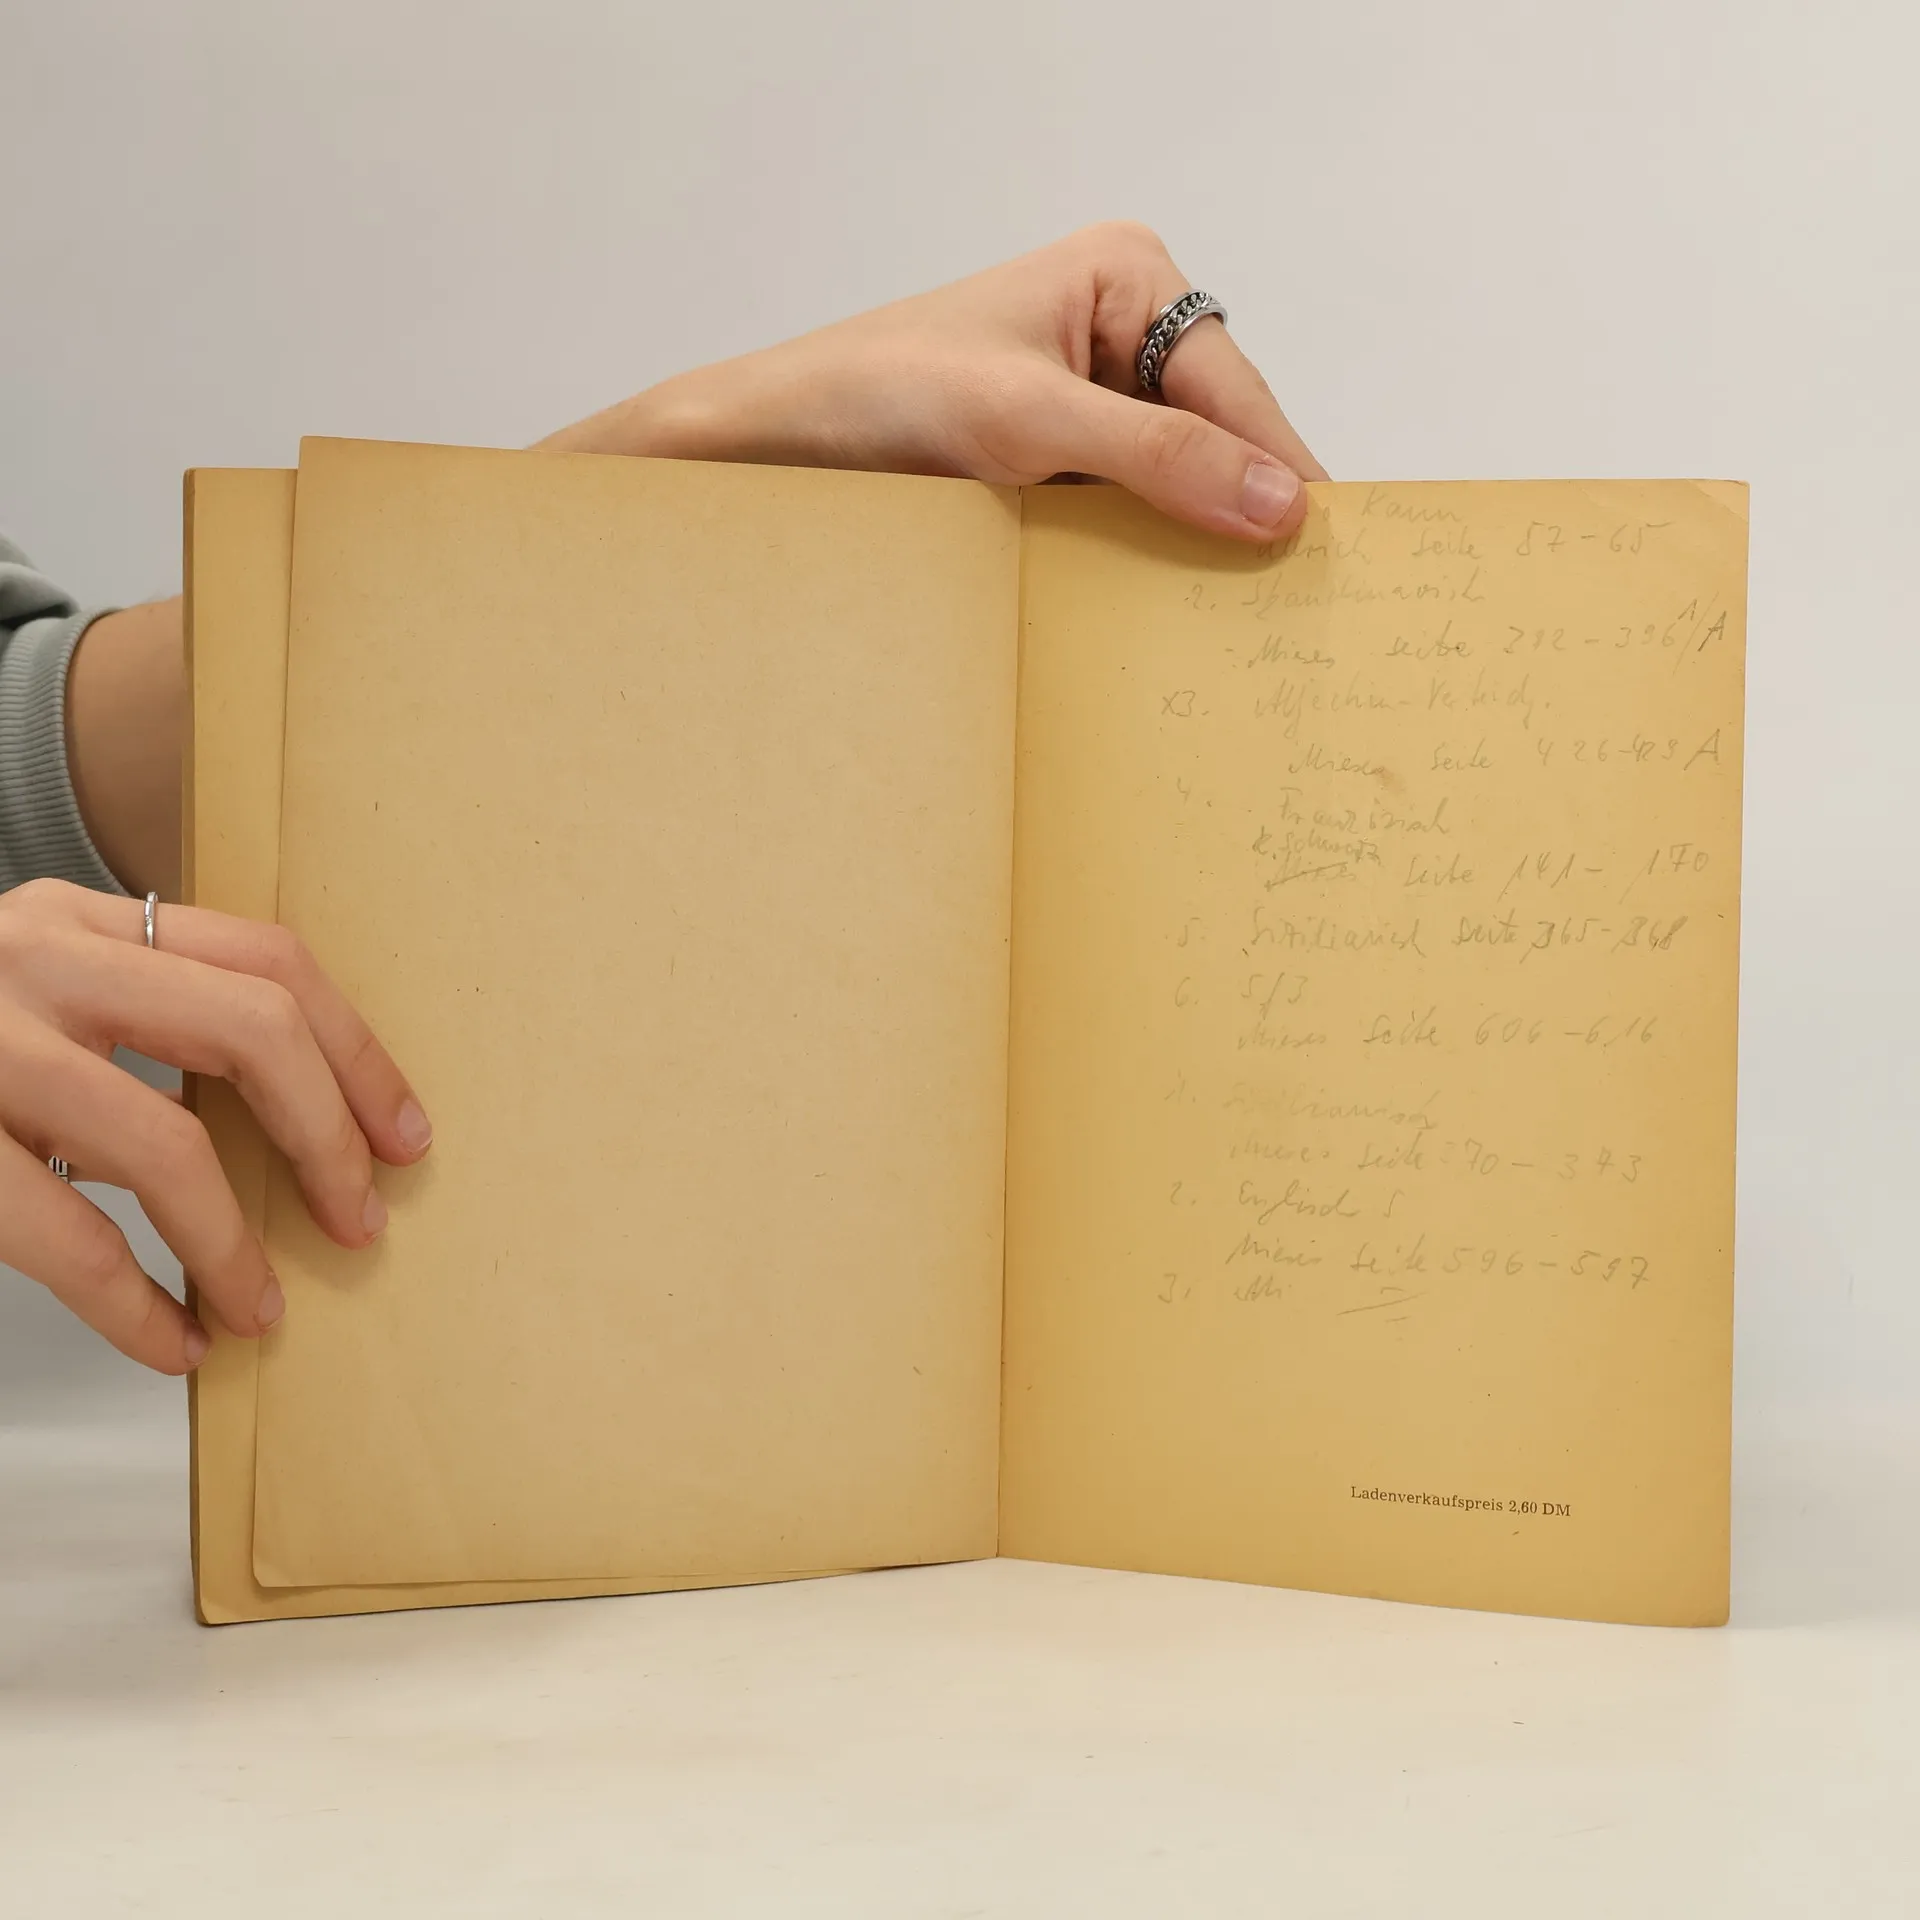 Kann
Ullrich Seite 57-65
2. Skandinavisch
- Mieses Seite 392-396 1/A
x3. Aljechin-Verteidg.
Mieses Seite 426-429 A
4. Französisch
K. Schwarz
Mieses Seite 141-170
5. Sizilianisch Seite 365-368
6. S/3
Mieses Seite 606-616
1. Sizilianisch
Mieses Seite 370-373
2. Englisch S
Mieses Seite 596-597
3.
Ladenverkaufspreis 2,60 DM